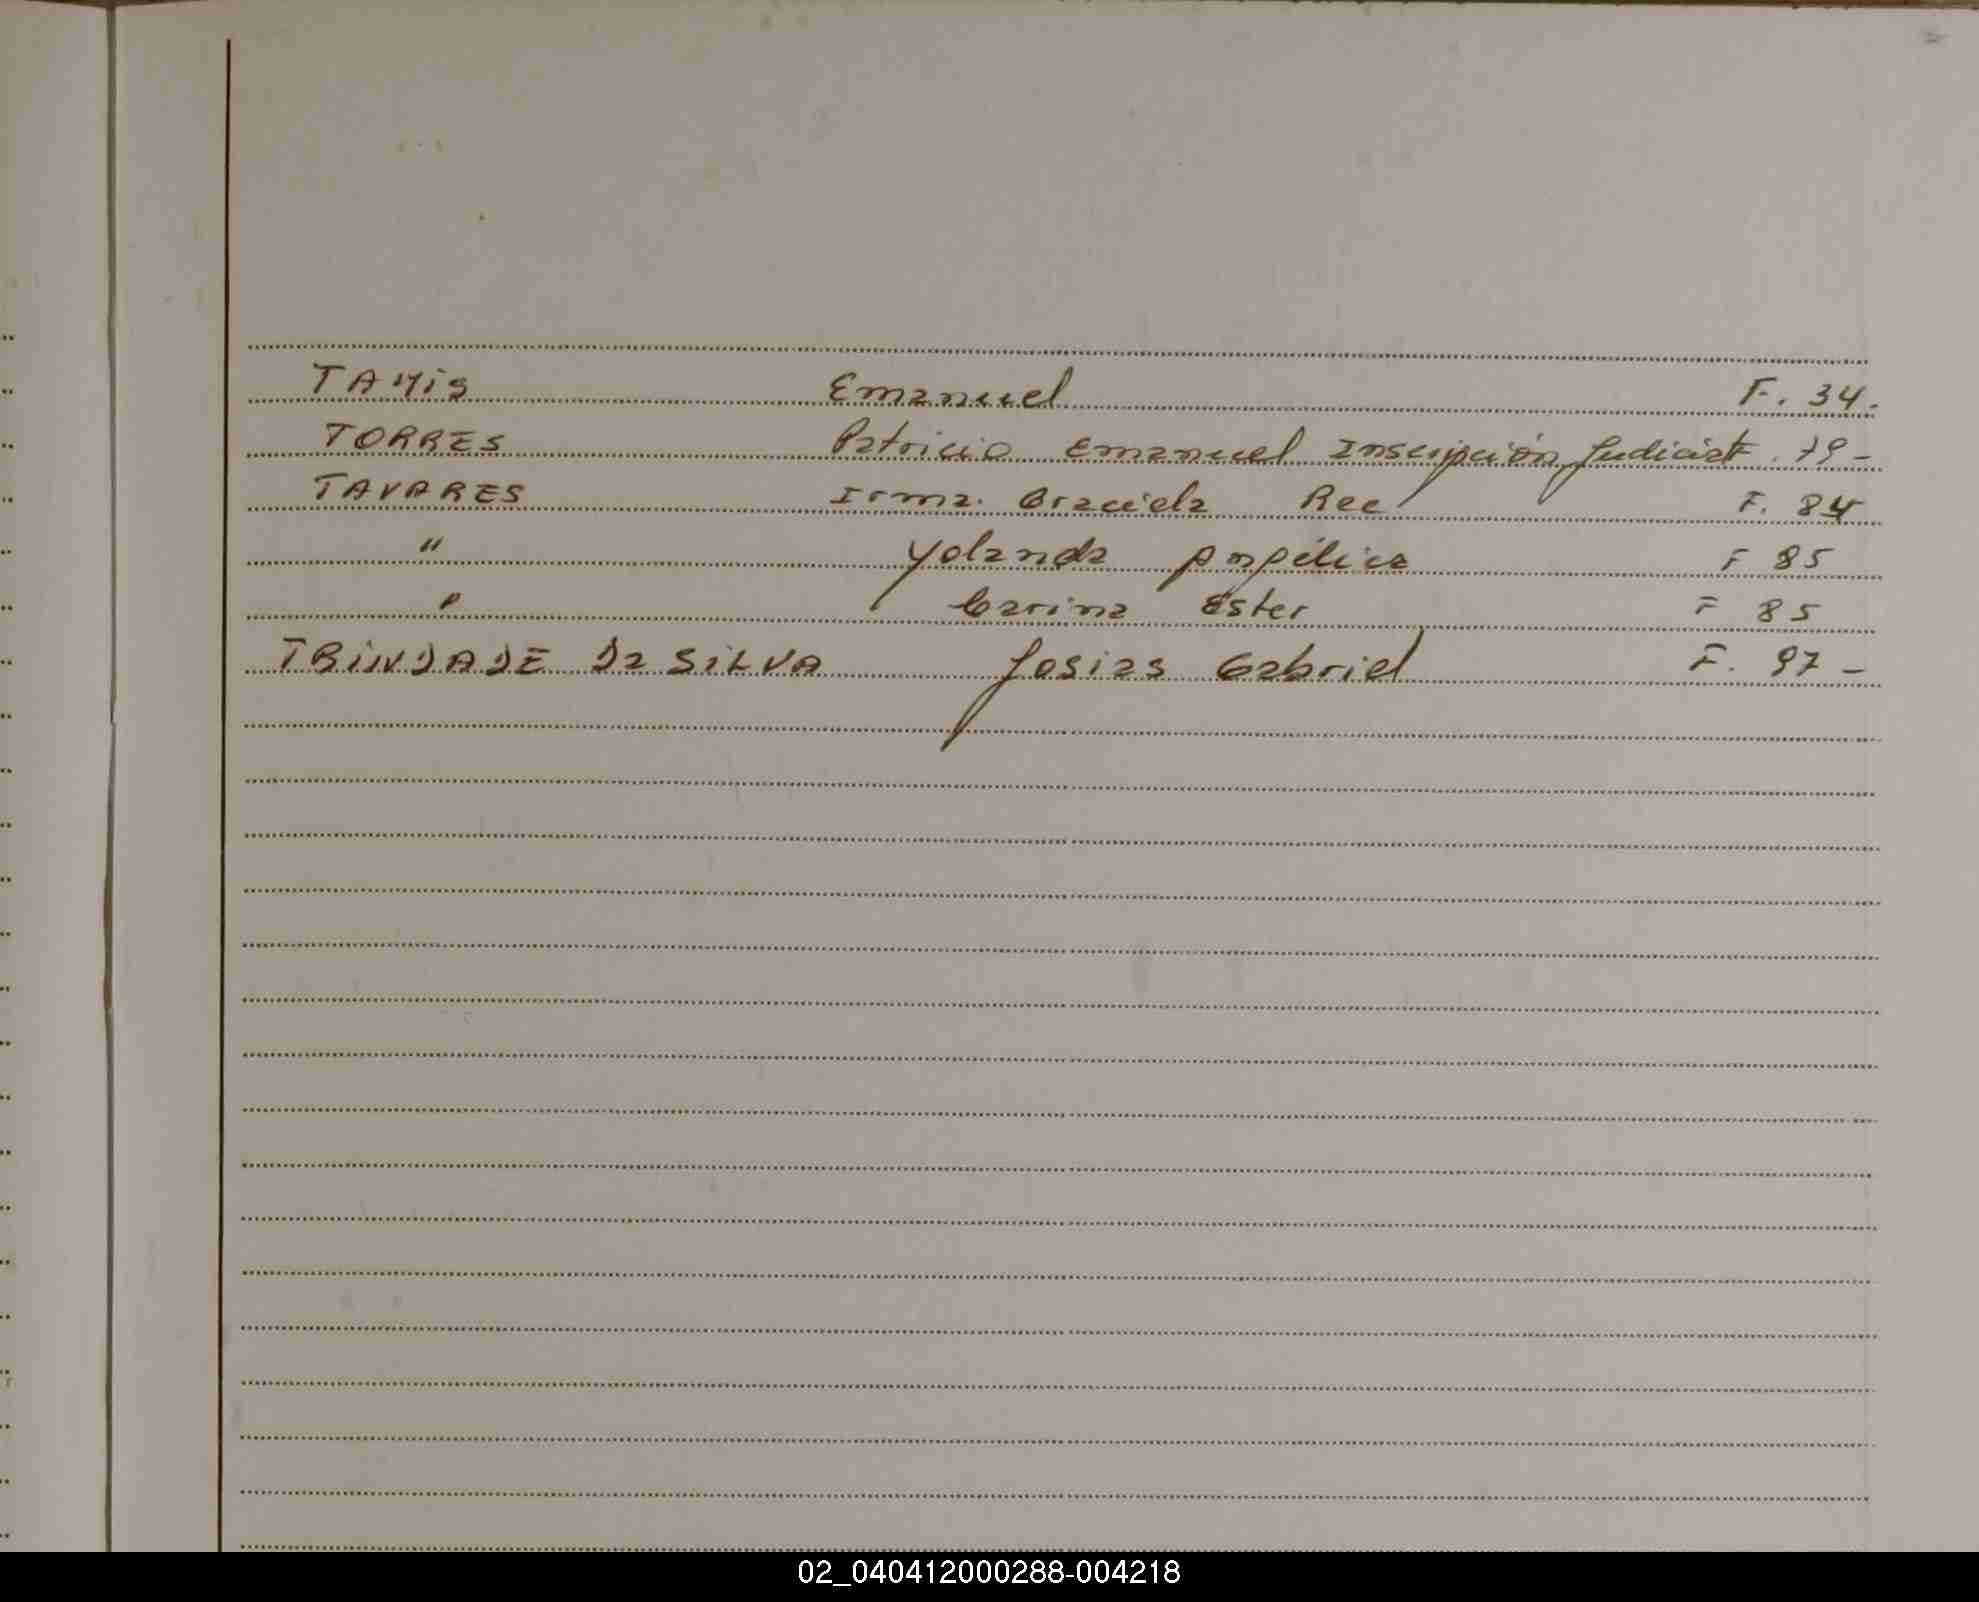 TAMiS Emanuel F. 34.
TORRES Patricio Emanuel Inscripción Judicial F. 79-
TAVARES Irma. Graciela Rec F. 84
" Yolanda Angélica F 85
" Carina Ester F 85
TRiNDADE Da SiLVA Josias Gabriel F. 97-
02_040412000288-004218